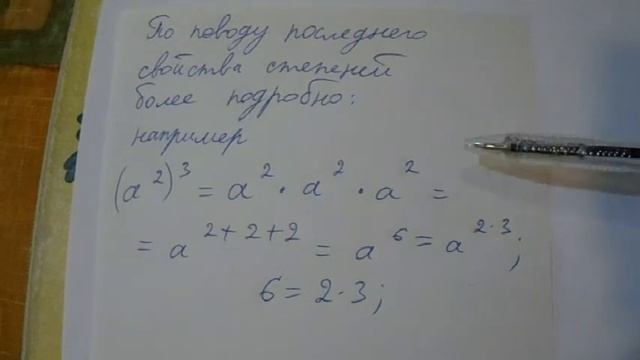 По поводу последнего
свойства степеней
более подробно:
например
(a²)³ = a² · a² · a² =
= a²⁺²⁺² = a⁶ = a²˙³;
6 = 2 · 3;